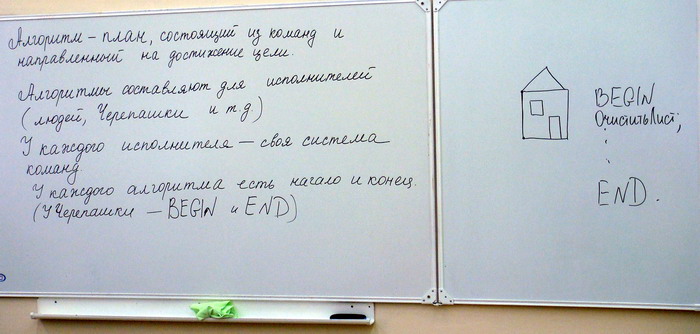 Алгоритм – план, состоящий из команд и
направленный на достижение цели.
Алгоритмы составляют для исполнителей
(людей, Черепашки и т.д.)
У каждого исполнителя – своя система
команд
У каждого алгоритма есть начало и конец.
(У Черепашки – BEGIN и END)
BEGIN
ОчиститьЛист;
.
.
.
END.